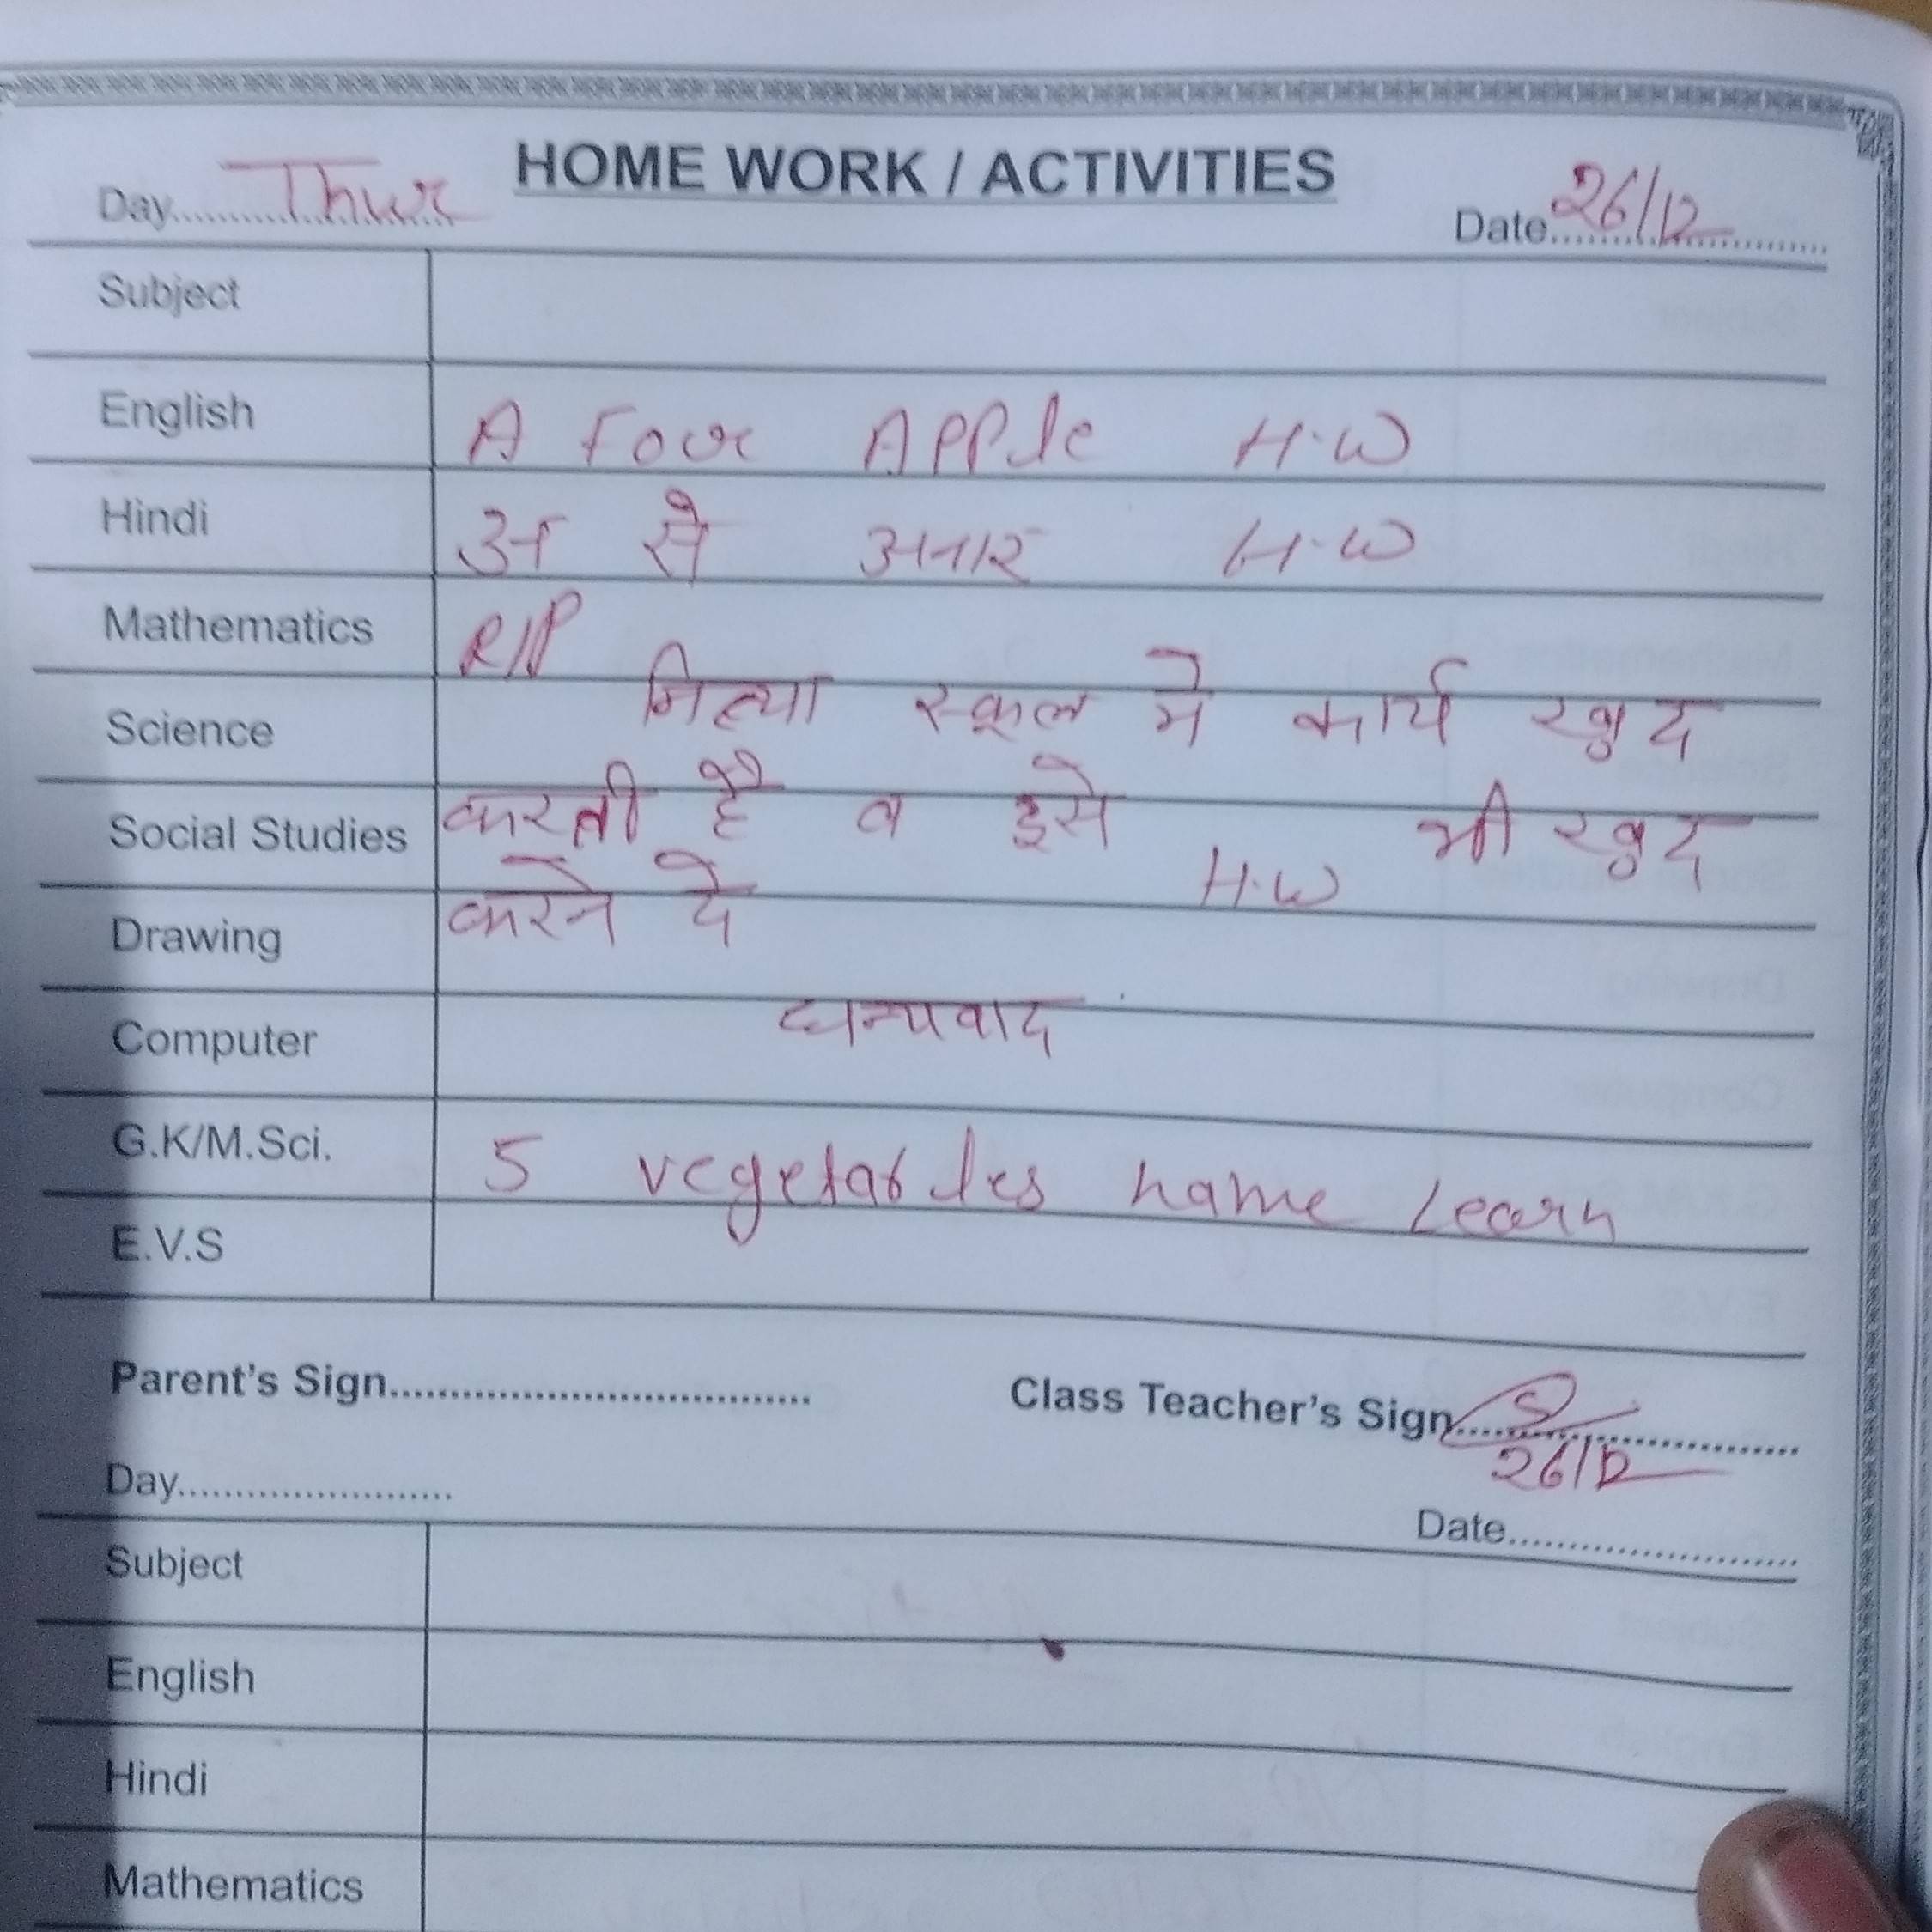 HOME WORK / ACTIVITIES
Day.................... Thur
Date.................... 26/12
Subject
English A Foor APPle H.W
Hindi अ से अनार H.W
Mathematics R/P
Science नित्या स्कूल मे कार्य खुद
Social Studies करती है व इसे H.W भी खुद
Drawing करने दे
Computer धन्यवाद
G.K/M.Sci. 5 vegetables name Learn
E.V.S
Parent's Sign....................................
Class Teacher's Sign.............................
26/12
Day........................
Date.........................
Subject
English
Hindi
Mathematics